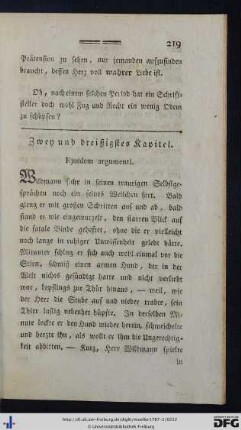 219
Prätension zu sehen, nur jemanden aufzufinden
braucht, dessen Herz voll wahrer Liebe ist.
Oh, nach einem solchen Period hat ein Schrift-
steller doch wohl Fug und Recht ein wenig Odem
zu schöpfen?
Zwey und dreißigstes Kapitel.
Ejusdem argumenti.
Wildmann fuhr in seinen traurigen Selbstge-
sprächen noch ein feines Weilchen fort. Bald
gieng er mit großen Schritten auf und ab, bald
stand er wie eingewurzelt, den starren Blick auf
die fatale Binde geheftet, ohne die er vielleicht
noch lange in ruhiger Unwissenheit gelebt hätte.
Mitunter schlug er sich auch wohl einmal vor
die Stirn, schmiß einen armen Hund, der in der
Welt nichts gesündigt hatte und nicht vorlieb
war, kopflings zur Thür hinaus, — weil, wie
der Herr die Stube auf und nieder trabte, sein
Thier lustig nebenher hüpfte. In derselben Mi-
nute lockte er den Hund wieder herein, schmeichelte
und herzte ihn, als wollt er ihm die Ungerechtig-
keit abbitten, — Kurz, Herr Wildmann spielte
in
© Universitätsbibliothek Freiburg
DFG